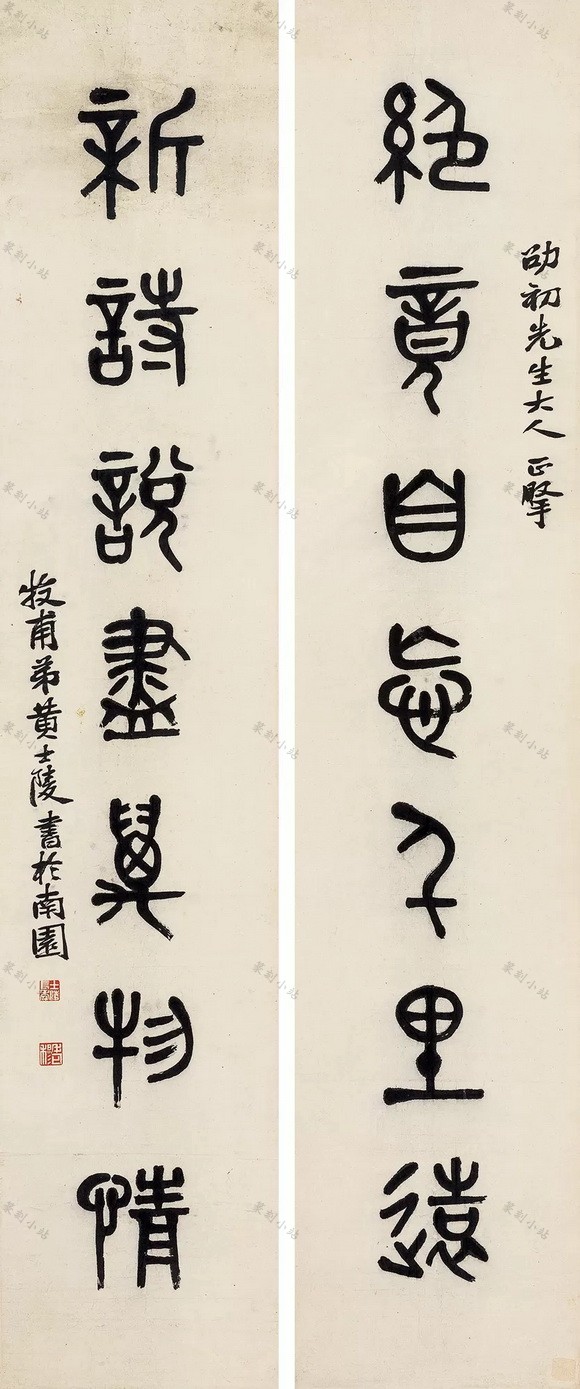 絕竟自忘千里遠
劭初先生大人正擥
新詩說盡萬物情
牧甫弟黃士陵書於南園
篆刻小站